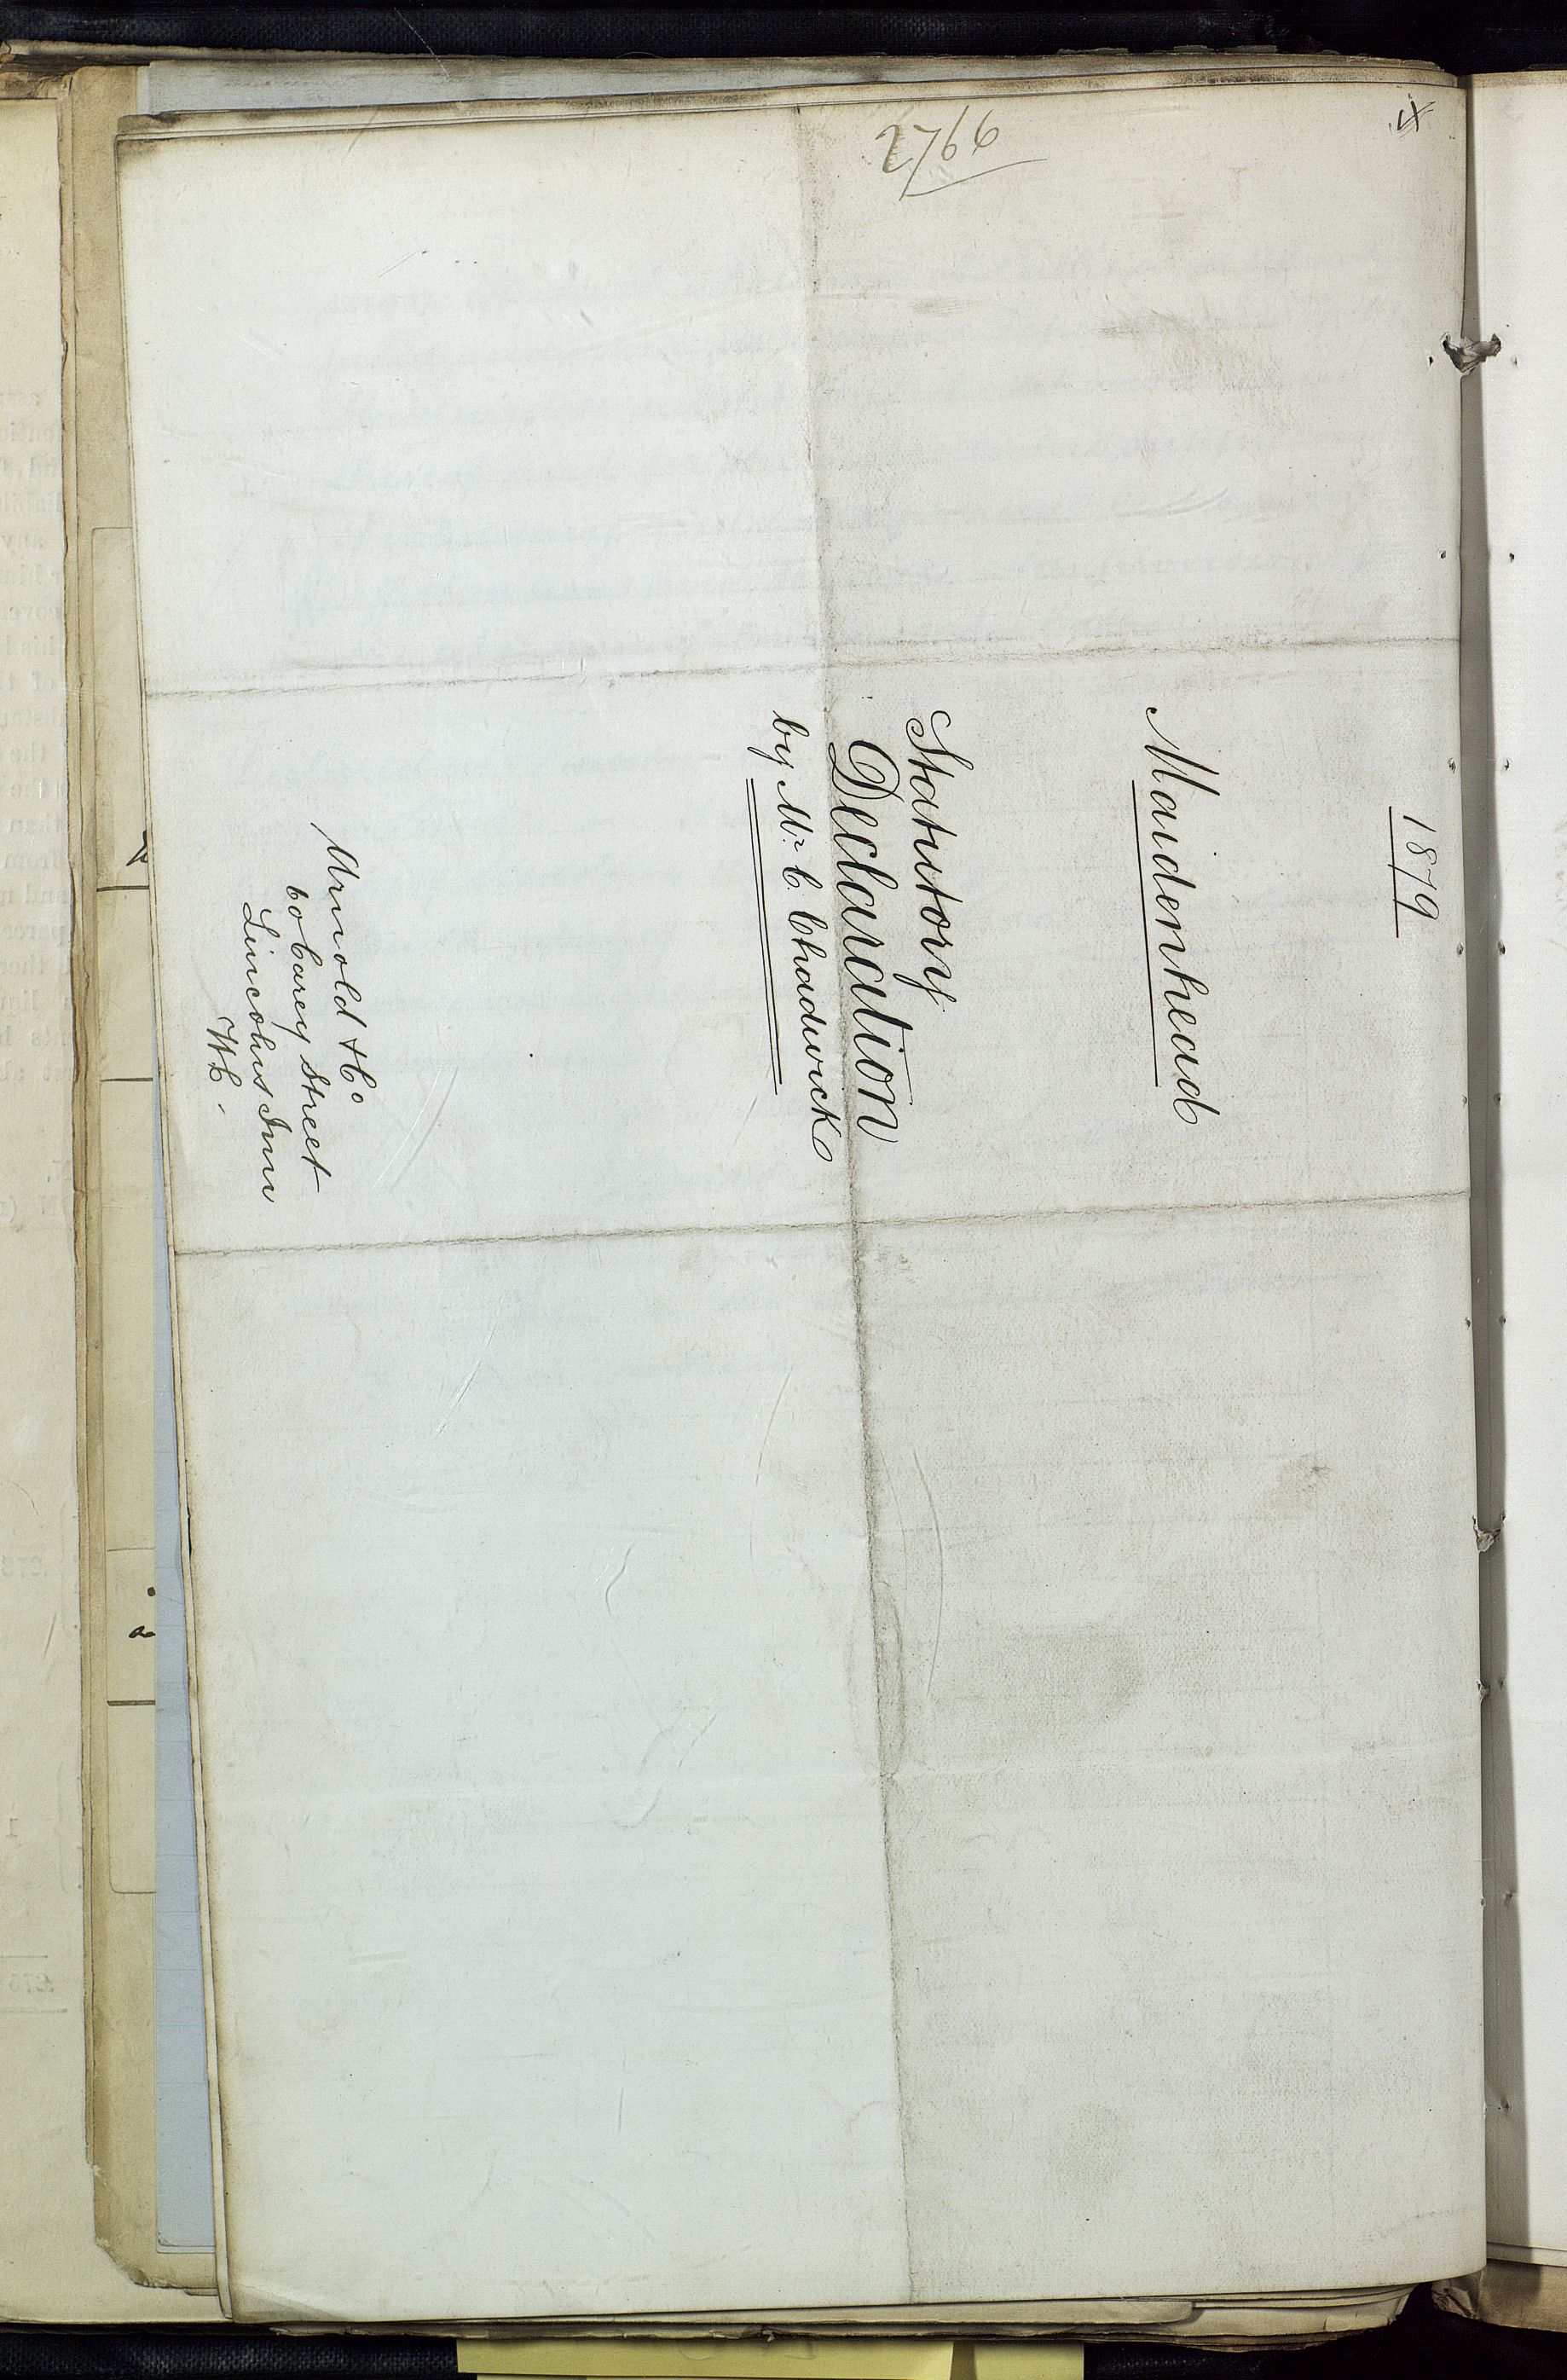 2766
1879
Maidenhead
Statutory
Declaration
by Mr. C. Chadwick
Arnold & Co
60 Carey Street
Lincolns Inn
W.C.